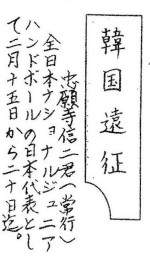 韓国遠征
忠願寺信二君(常行)
全日本ナショナルジュニア
ハンドボールの日本代表とし
て二月十五日から二十日迄。